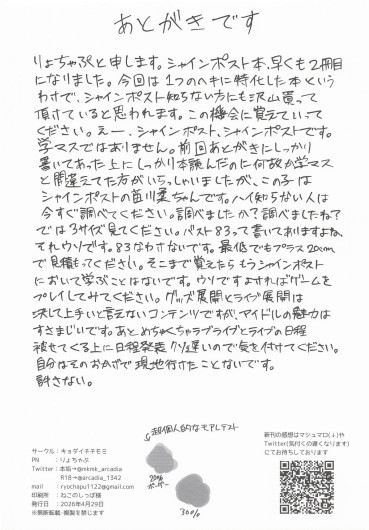 あとがきです
りょちゃぷと申します。シャインポスト本、早くも2冊目
になりました。今回は1つのヘキに特化した本という
わけで、シャインポスト知らない方にも沢山買って
頂けていると思われます。この機会に覚えていって
ください。えー、シャインポスト、シャインポストです。
学マスではありません。前回あとがきにしっかり
書いてあった上にしっかり本読んだのに何故か学マス
と間違えてた方がいらっしゃいましたが、この子は
シャインポストの苗川柔ちゃんです。ハイ知らない人は
今すぐ調べてください。調べましたか?調べましたね?
では3サイズ見てください。バスト83って書いてありますよね、
それウソです。83なわけないです。最低でもプラス20cm
で見積もってください。そこまで覚えたらもうシャインポスト
において学ぶことはないです。ウソですよければゲームを
プレイしてみてください。グッズ展開とライブ展開は
決して上手いと言えないコンテンツですが、アイドルの魅力は
すさまじいです。あとめちゃくちゃラブライブとライブの日程
被せてくる上に日程発表クソ遅いので気を付けてください。
自分はそのおかげで現地行けたことないです。
許さない。
超個人的なモアレテスト
20%
ボーダー
30%
サークル:キョダイチチモミ
PN:りょちゃぷ
Twitter:本垢→@mkmk_arcadia
R18→@arcadia_1342
mail:ryochapu1122@gmail.com
印刷所:ねこのしっぽ様
発行日:2026年4月29日
※無断転載・複製を禁じます
新刊の感想はマシュマロ(↓)や
Twitter(気付くの遅くなります)
にてお待ちしております